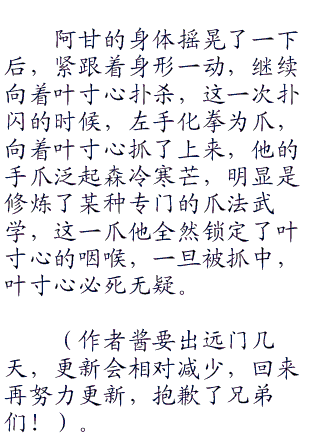 阿甘的身体摇晃了一下
后，紧跟着身形一动，继续
向着叶寸心扑杀，这一次扑
闪的时候，左手化拳为爪，
向着叶寸心抓了上来，他的
手爪泛起森冷寒芒，明显是
修炼了某种专门的爪法武
学，这一爪他全然锁定了叶
寸心的咽喉，一旦被抓中，
叶寸心必死无疑。
（作者酱要出远门几
天，更新会相对减少，回来
再努力更新，抱歉了兄弟
们！）。